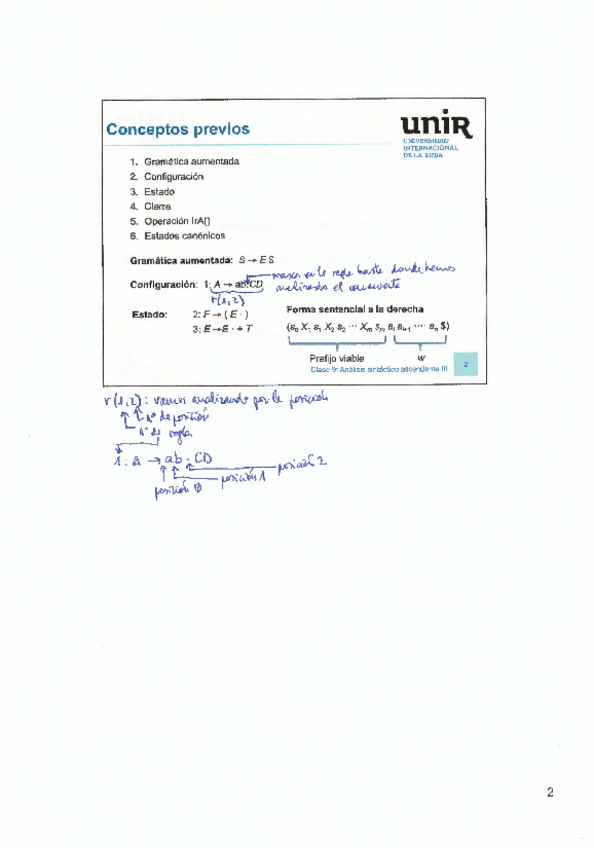 Conceptos previos
unir
UNIVERSIDAD
INTERNACIONAL
DE LA RIOJA
1. Gramática aumentada
2. Configuración
3. Estado
4. Cierre
5. Operación IrA()
6. Estados canónicos
Gramática aumentada: S → E $
marca en la regla hasta donde hemos
analizando el consecuente
Configuración: 1: A → ab·CD
r(1,2)
Estado: 2: F → ( E · )
3: E → E · + T
Forma sentencial a la derecha
(s₀ X₁ s₁ X₂ s₂ ··· Xₘ sₘ, aᵢ aᵢ₊₁ ··· aₙ $)
Prefijo viable w
Clase 9: Análisis sintáctico ascendente III
2
r(1,2): vamos analizando por la posición
nº de posición
nº de regla
1: A → ab · CD
posición 2
posición 1
posición 0
2